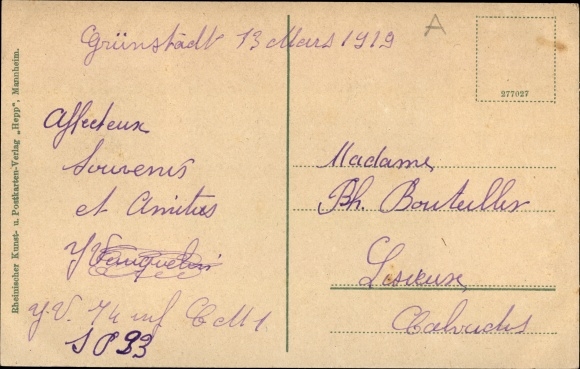 Grünstadt 13 Mars 1919
A
277027
Affectueux
Souvenirs
et Amitiés
Madame
Ph. Bouteiller
Lisieux
Calvados
Y. V. 74 inf C M 1
S P 93
Rheinischer Kunst- u. Postkarten-Verlag „Hepp", Mannheim.